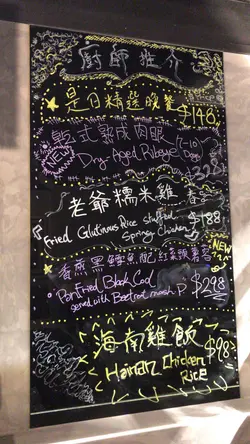 廚師推介
是日精選晚餐 $148
乾式熟成肉眼
NEW (7-10 Days)
Dry Aged Ribeye $228
老爺糯米雞
Fried Glutinous Rice stuffed $188
Spring Chicken
香煎黑鱈魚配紅菜頭薯蓉
NEW
PanFried Black Cod $298
served with Beetroot mash P.
海南雞飯 $98
Hainan Chicken
Rice